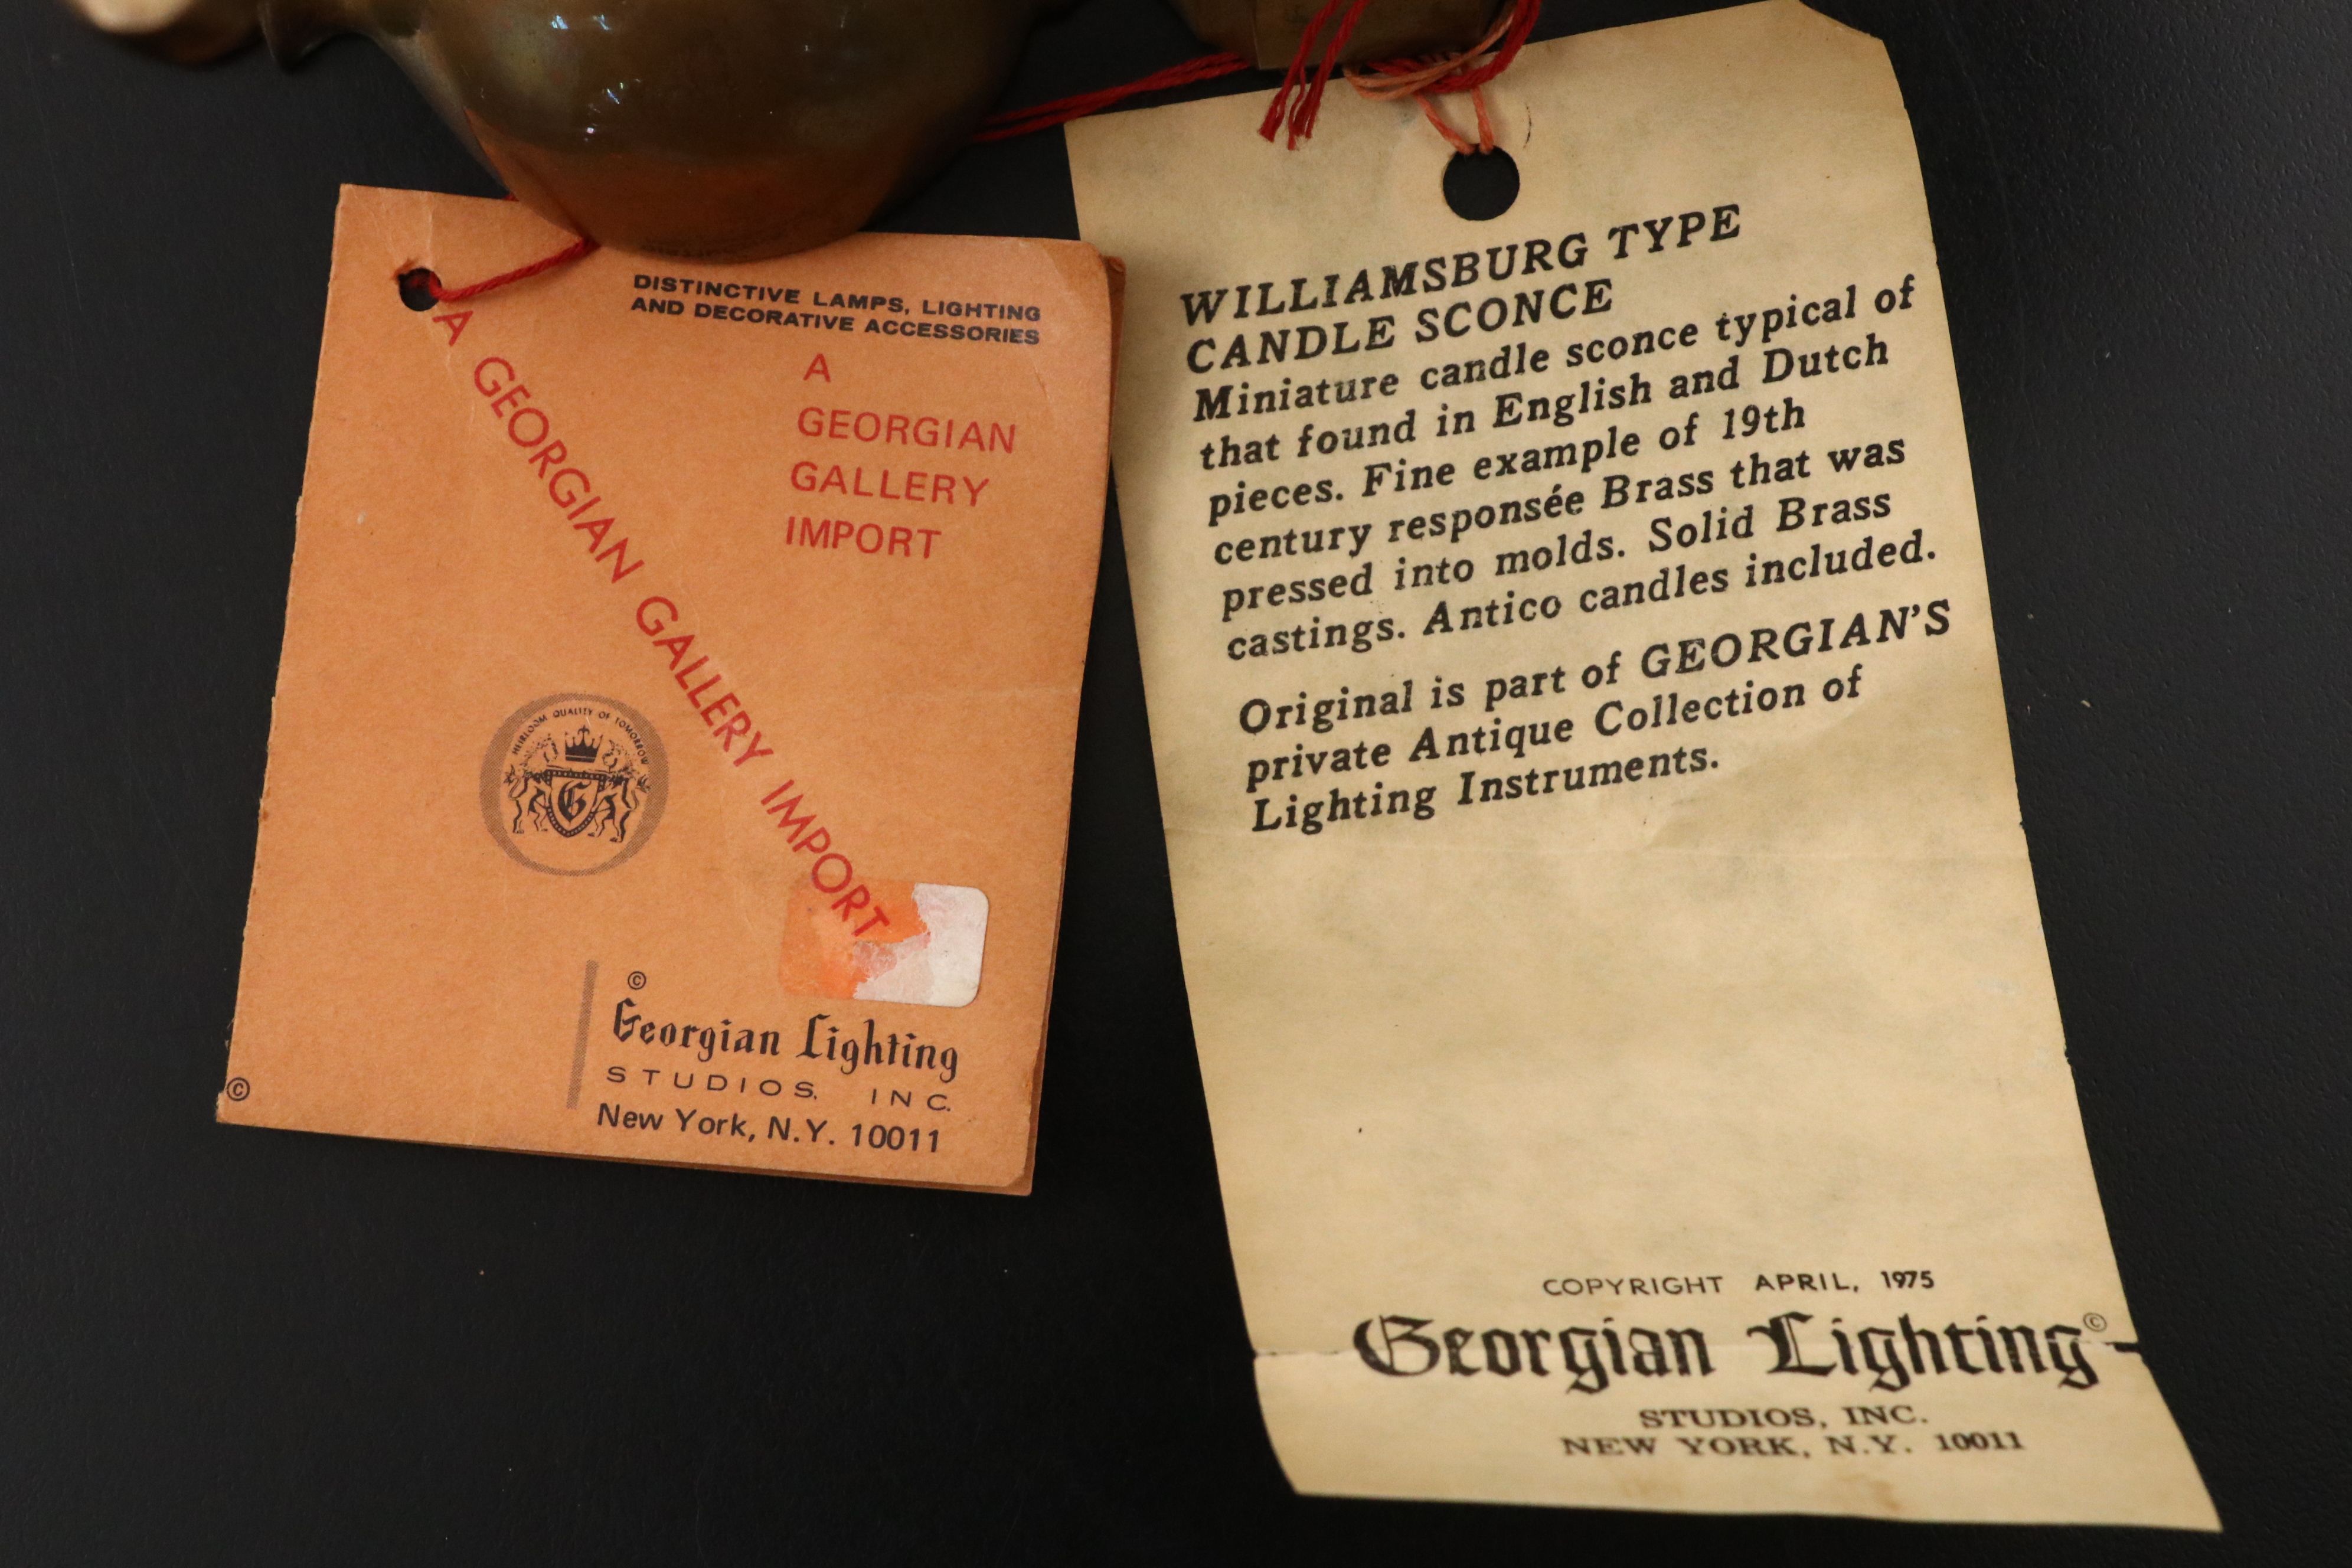 DISTINCTIVE LAMPS, LIGHTING
AND DECORATIVE ACCESSORIES
A
GEORGIAN
GALLERY
IMPORT
A GEORGIAN GALLERY IMPORT
HEIRLOOM QUALITY OF TOMORROW
G
©
Georgian Lighting
STUDIOS, INC.
New York, N.Y. 10011
©
WILLIAMSBURG TYPE
CANDLE SCONCE
Miniature candle sconce typical of
that found in English and Dutch
pieces. Fine example of 19th
century responsée Brass that was
pressed into molds. Solid Brass
castings. Antico candles included.
Original is part of GEORGIAN'S
private Antique Collection of
Lighting Instruments.
COPYRIGHT APRIL, 1975
Georgian Lighting©
STUDIOS, INC.
NEW YORK, N.Y. 10011